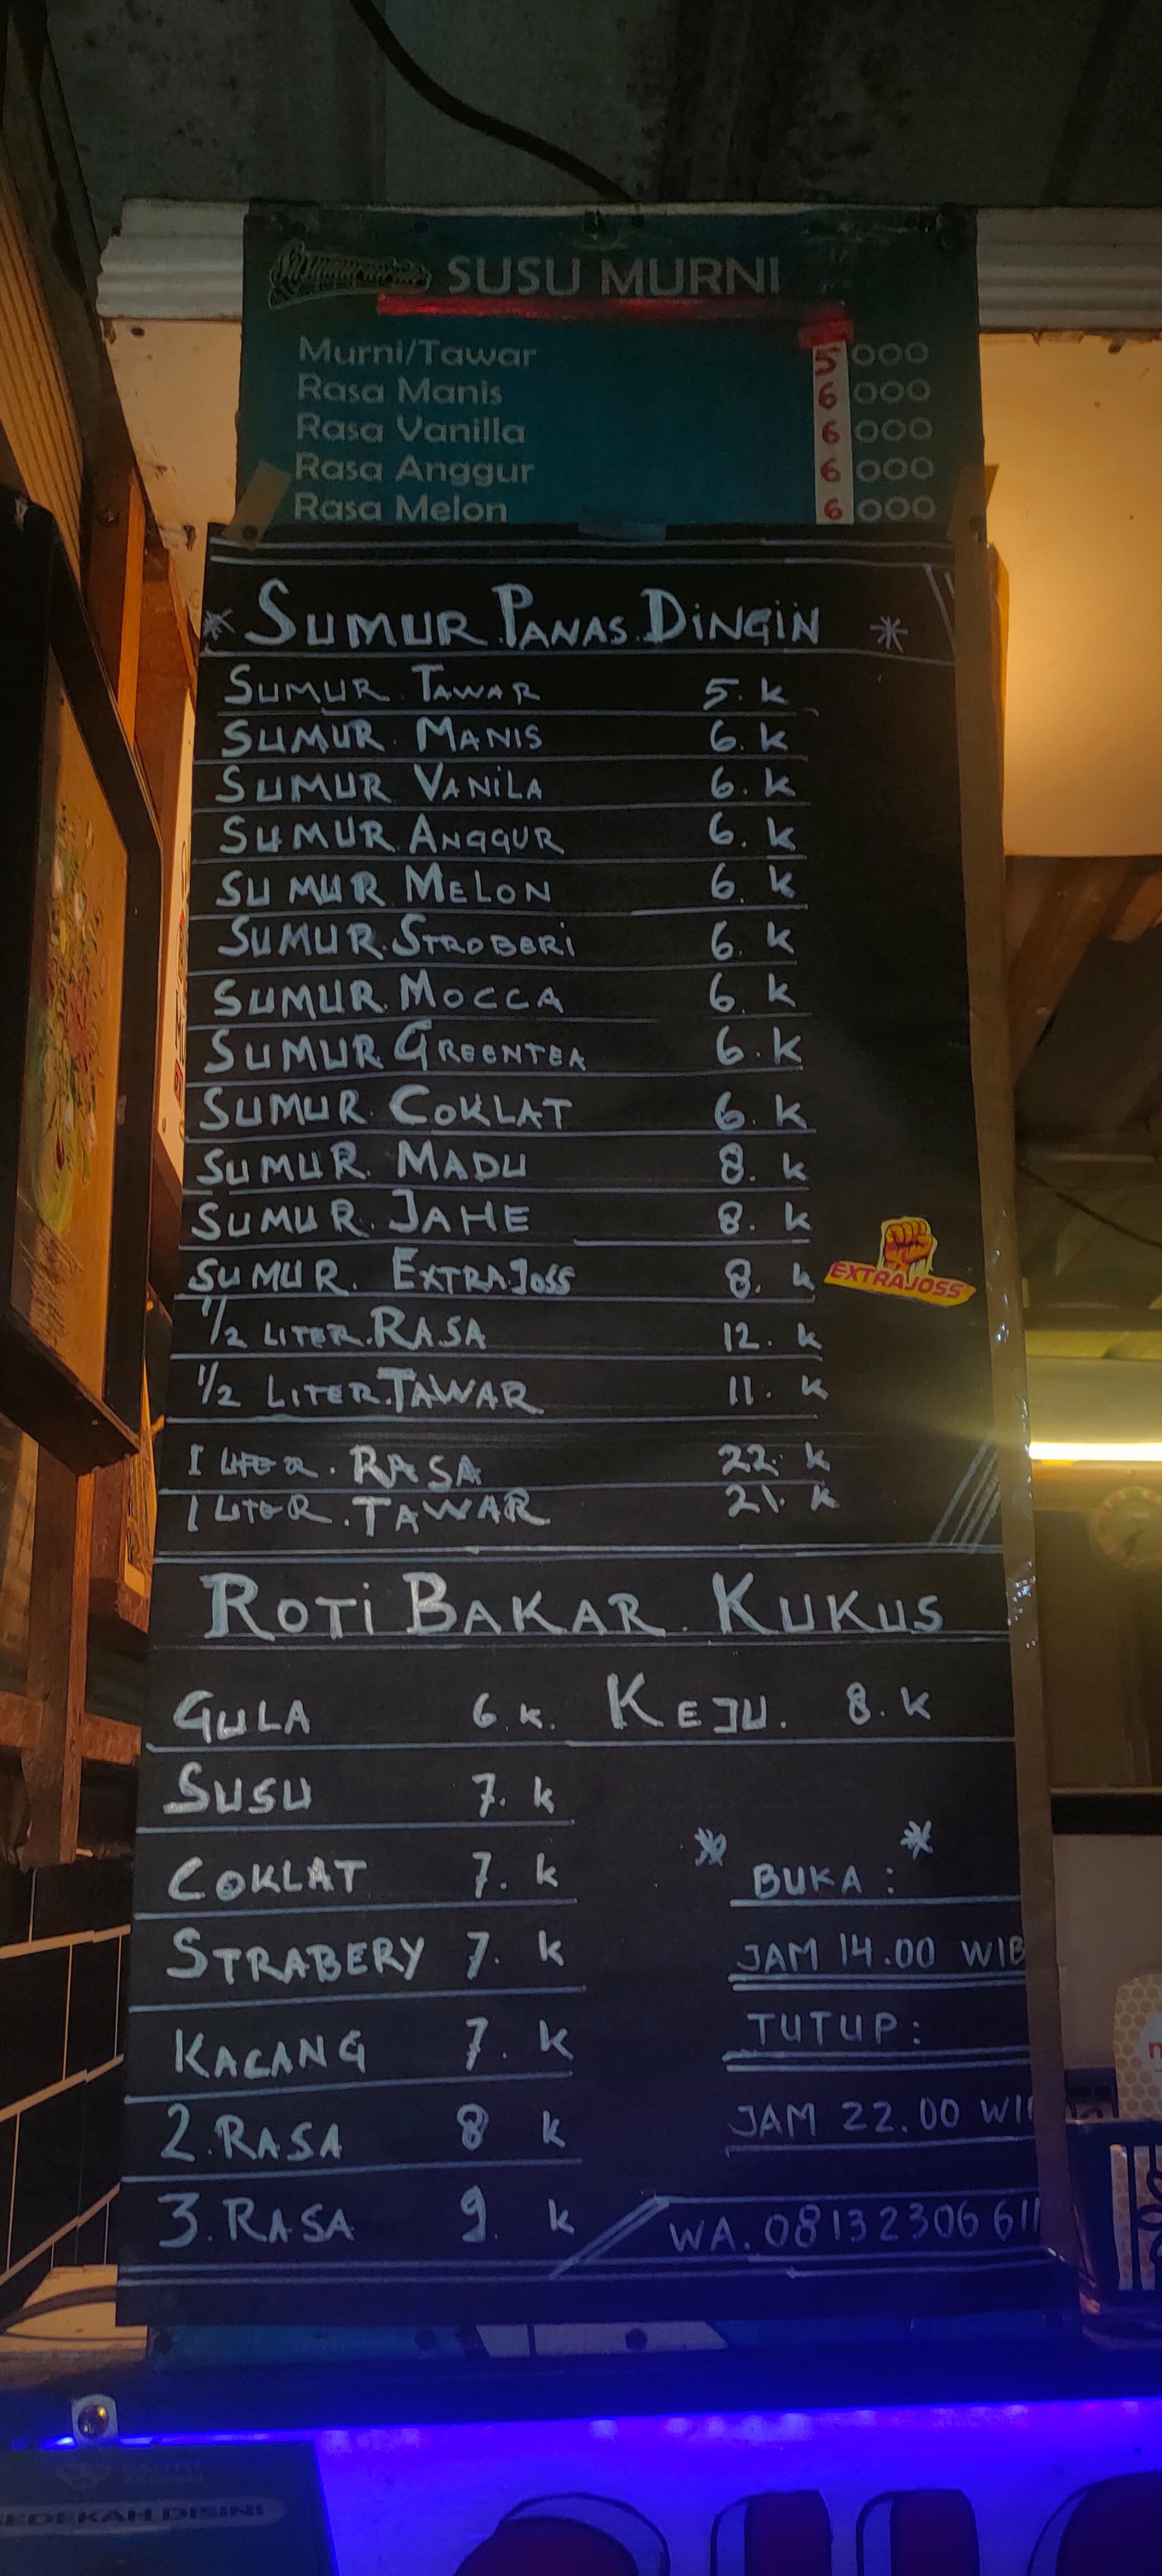 SUSU MURNI
Murni/Tawar 5000
Rasa Manis 6000
Rasa Vanilla 6000
Rasa Anggur 6000
Rasa Melon 6000
* SUMUR PANAS DINGIN *
SUMUR TAWAR 5. K
SUMUR MANIS 6. K
SUMUR VANILA 6. K
SUMUR ANGGUR 6. K
SUMUR MELON 6. K
SUMUR STROBERI 6. K
SUMUR MOCCA 6. K
SUMUR GREENTEA 6. K
SUMUR COKLAT 6. K
SUMUR MADU 8. K
SUMUR JAHE 8. K
SUMUR EXTRAJOSS 8. K
EXTRAJOSS
1/2 LITER RASA 12. K
1/2 LITER TAWAR 11. K
1 LITER. RASA 22. K
1 LITER. TAWAR 21. K
ROTI BAKAR. KUKUS
GULA 6. K. KEJU. 8. K
SUSU 7. K
COKLAT 7. K
STRABERY 7. K
KACANG 7. K
2. RASA 8 K
3. RASA 9. K
* BUKA : *
JAM 14.00 WIB
TUTUP :
JAM 22.00 WI
WA. 08132306611
SEDEKAH DISINI